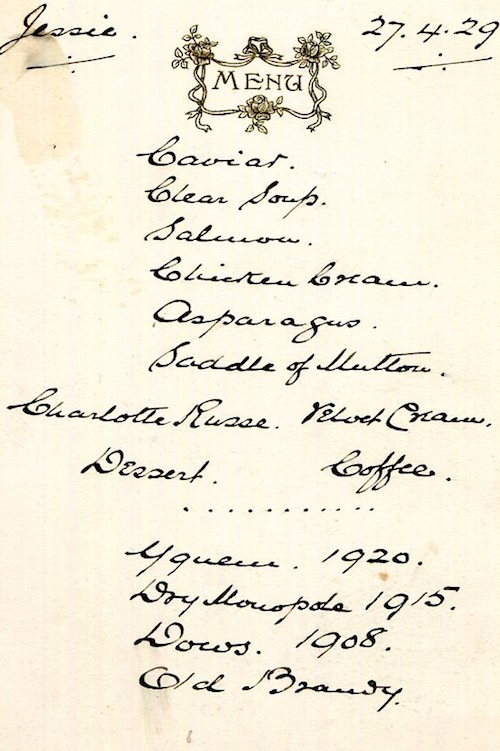 Jessie. 27.4.29
MENU
Caviar.
Clear Soup.
Salmon.
Chicken Cream.
Asparagus.
Saddle of Mutton.
Charlotte Russe. Velvet Cream.
Dessert. Coffee.
...........
Yquem. 1920.
Dry Monopole 1915.
Dows. 1908.
Old Brandy.